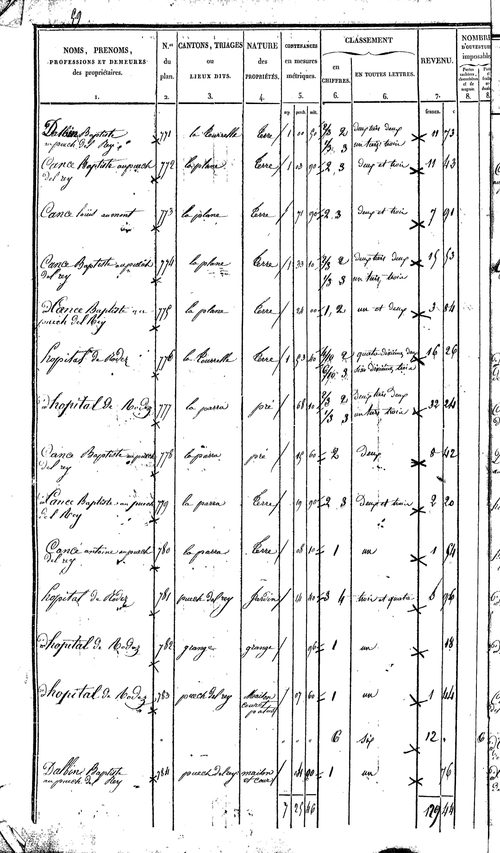 NOMS, PRENOMS,
PROFESSIONS ET DEMEURES
des propriétaires.
N.os
du
plan.
CANTONS, TRIAGES
ou
LIEUX DITS.
NATURE
des
PROPRIÉTÉS.
CONTENANCES
en mesures
métriques.
CLASSEMENT
en
CHIFFRES.
EN TOUTES LETTRES.
REVENU.
NOMBRE
imposable
1. 2. 3. 4. 5. 6. 6. 7. 8. 8.
francs. c
Dalbin Baptiste 771 la Tourrelle terre 1 2/3 2 deux tiers deux 11 73
au puech del Rey 1/3 3 un tiers trois
Cance Baptiste au puech 772 la plane terre 1 03 90 2, 3 deux et trois 11 43
del rey
Cance 773 la plane terre 71 90 2, 3 deux et trois 7 91
Cance Baptiste au puech 774 la plane terre 1 33 10 2/3 2 deux tiers deux 15 53
del rey 1/3 3 un tiers trois
Cance Baptiste au 775 la plane terre 24 1, 2 un et deux 3 84
puech del Rey
hopital de Rodez 776 la Tourrelle terre 1 53 4/10 2 quatre dixièmes deux 16 26
6/10 3 six dixièmes trois
hopital de Rodez 777 la parra pré 68 10 2/3 2 deux tiers deux 32 24
1/3 3 un tiers trois
Cance Baptiste au puech 778 la parra pré 15 60 2 deux 8 42
del rey
Cance Baptiste au puech 779 la parra terre 19 90 2 3 deux et trois 2 20
del Rey
Cance antoine au puech 780 la parra terre 08 10 1 un 1
del rey
hopital de Rodez 781 puech del rey Jardin 14 3 4 trois et quatre 6 96
hopital de Rodez 782 grange grange 96 1 un 18
hopital de Rodez 783 puech del rey Maison 07 60 1 un 1 44
cour et
patus
6 six 12 6
Dalbin Baptiste 784 puech del rey maison 1 un 76
au puech del Rey et cour
7 25 46 129 44